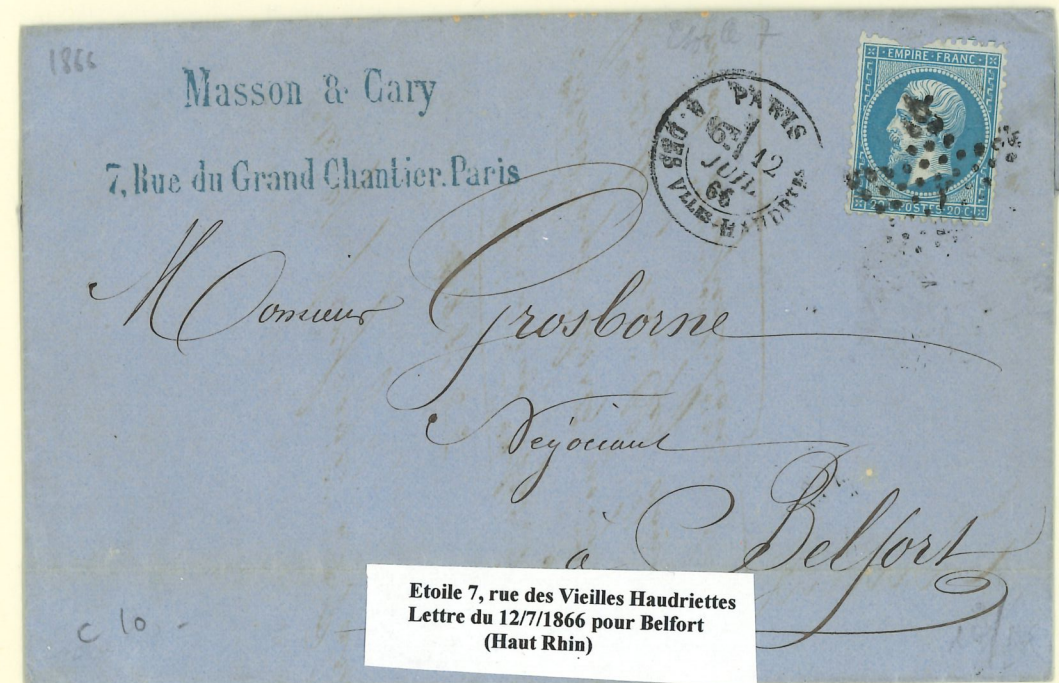 1866
Etoile 7
Masson & Cary
7, Rue du Grand Chantier. Paris
PARIS
R. DES VLLES-HAUDRTES
6E/
12
JUIL
66
EMPIRE · FRANC ·
20 C POSTES 20 C
7
Monsieur Grosborne
Négociant
à Belfort
Etoile 7, rue des Vieilles Haudriettes
Lettre du 12/7/1866 pour Belfort
(Haut Rhin)
C 10 -